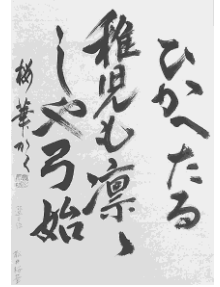 ひかへたる
稚児も凛々
しや弓始
梅葉かく